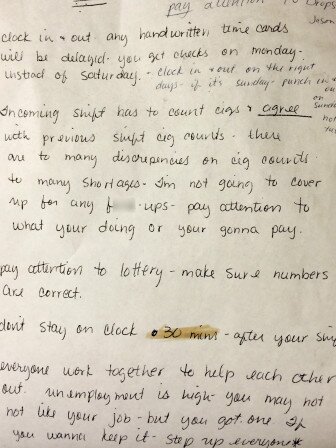 pay attention to Drops
Jason
clock in + out any handwritten time cards
will be delayed. you get checks on monday-
instead of saturday. - clock in + out on the right
days - if it's sunday - punch in
out
on Sunday
not
Incoming shift has to count cigs + agree
with previous shift cig counts - there
are to many discrepencies on cig counts
to many shortages - I'm not going to cover
up for any f -ups - pay attention to
what your doing or your gonna pay.
pay attention to lottery - make sure numbers
are correct.
don't stay on clock 30 mins - after your
everyone work together to help each other
out. unemployment is high - you may not
not like your job - but you got one. If
you wanna keep it - step up everyone*